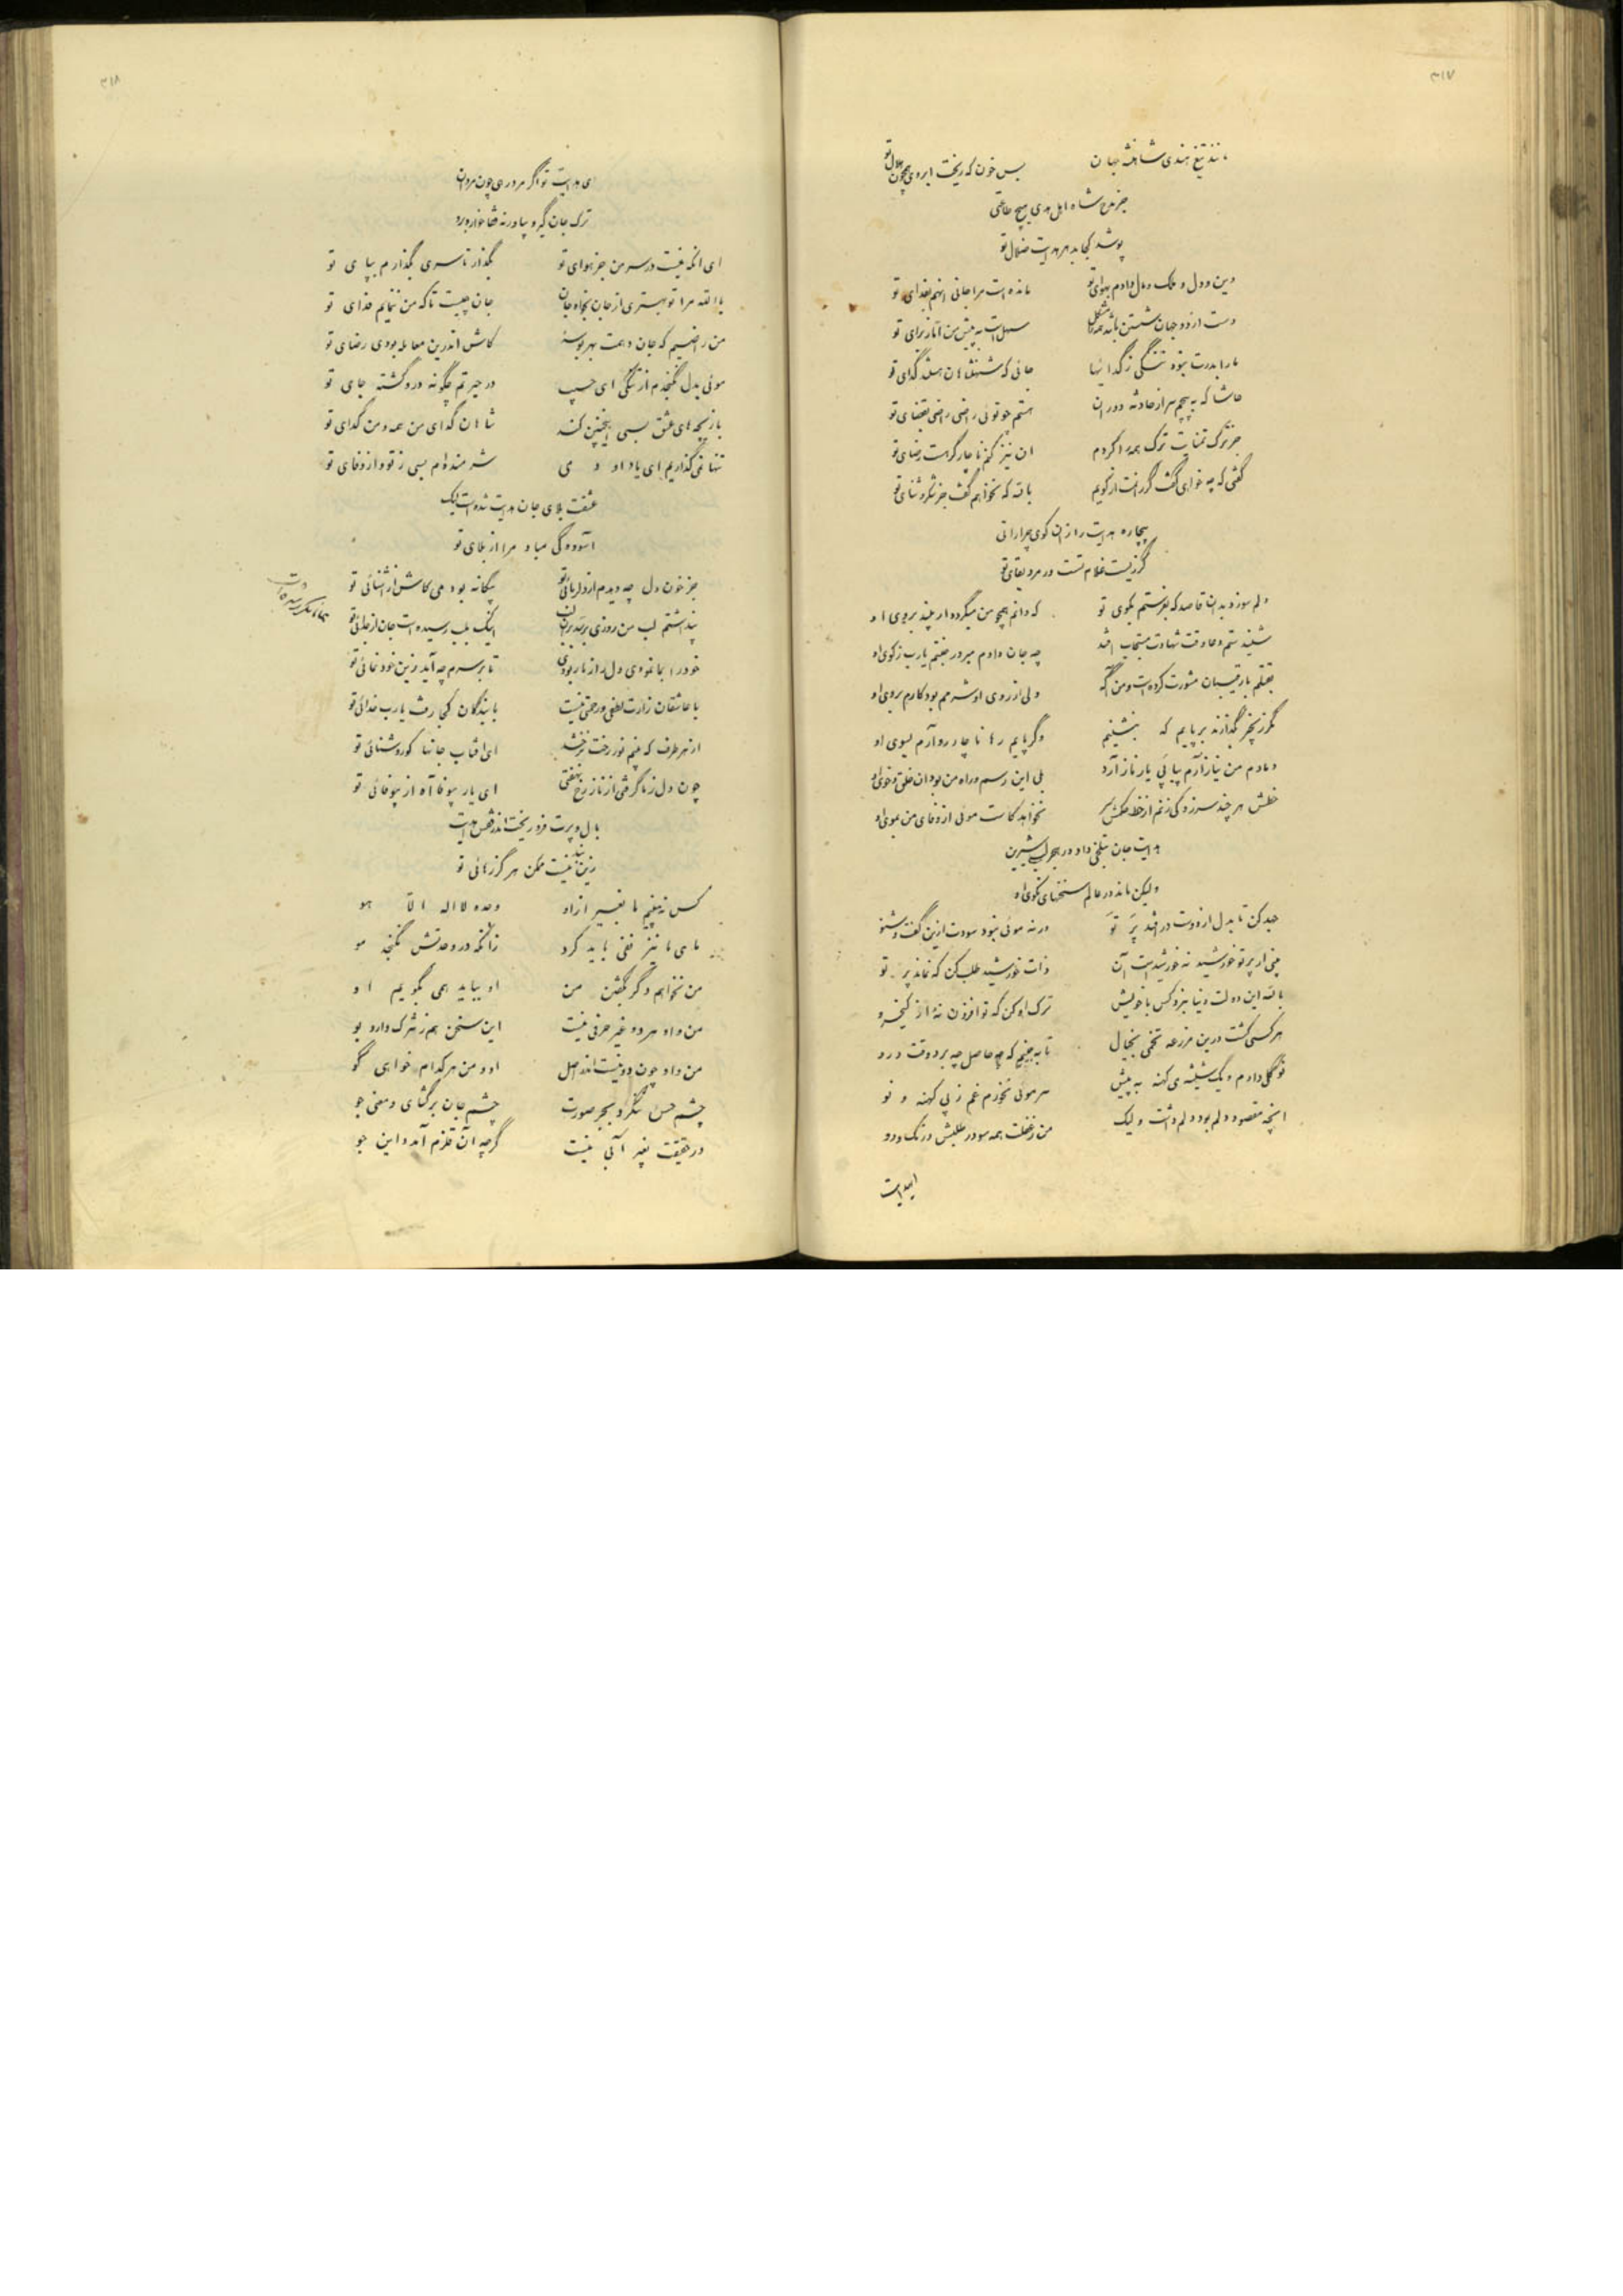 ۳۱۷
مانند تیغ هندی شاهنشه جهان بس خون که ریخت ابروی همچون هلال تو
جز مدح شاه اهل هدی هیچ طاعتی
پوشد کجا بد هدایت ضلال تو
دین و دل و ملک و مال دادم بهوای تو مانده است مرا جانی انهم بفدای تو
دست از دو جهان شستن باشد همه را مشکل سهل است به پیش من اما ز برای تو
ما را بدرت نبود ننگی ز گدائیها جائی که شهنشاهان هستند گدای تو
حاشا که به پیچم سر از حادثه دوران هستم چو توئی راضی راضی بقضای تو
جز ترک تمنایت ترک همه را کردم ان نیز کنم ناچار گر هست رضای تو
گفتی که چه خواهی گفت گر رانمت از کویم بالله که نخواهم گفت جز شکر و ثنای تو
بیچاره هدایت را زان کوی چرا رانی
گر زیست غلام تست ور مرد بقای تو
دلم سوزد بدان قاصد که بفرستم بکوی تو که دانم همچو من میگردد ار بیند بروی او
شنیدستم دعا وقت شهادت مستجاب افتد چه جان دادم مبر در جنتم یارب ز کوی او
بقتلم با رقیبان مشورت کرده است و من آگه ولی از روی او شرمم بود کارم بروی او
مگر زنجیر بگذارند بر پایم که بنشینم وگر پایم رها ناچار رو آرم بسوی او
دمادم من نیاز آرم پیاپی یار ناز آرد بلی این رسم و راه من بود ان خلق و خوی او
خطش هر چند سر زد کی زنم از خط حکمش سر نخواهد کاست موئی از وفای من بموی او
هدایت جان بتلخی داد در هجر لب شیرین
ولیکن ماند در عالم سخنهای نکوی او
جهد کن تا بدل از دوست در افتد پر تو ور نه موئی نبود سودت ازین گفت و شنو
بینی ار پرتو خورشید نه خورشید است آن ذات خورشید طلب کن که نماند پر تو
بالله این دولت دنیا نبرد کس با خویش ترک او کن که تو افزون نهٔ از کیخسرو
هر کسی کشت درین مزرعه تخمی بخیال تا به بینیم که چه حاصل چه برد وقت درو
نو گلی دارم و یک شیشه ی کهنه به پیش سر موئی نخورم غم ز پی کهنه و نو
انچه مقصود دلم بود دلم داشت ولیک من ز غفلت همه سو در طلبش در تک و دو
ایهدایت
۳۱۸
ای هدایت تو اگر مرد رهی چون مردان
ترک جان گیر و بیا ورنه
ای انکه نیست در سر من جز هوای تو بگذار تا سری بگذارم بپای تو
بالله مرا تو بهتری از جان بخواه جان جان چیست تا که من ننمایم فدای تو
من راضیم که جان دهمت بهر بوسهٔ کاش اندرین معامله بودی رضای تو
موئی بدل نگنجدم از تنگی ای حبیب در حیرتم چگونه درو گشته جای تو
بازیچه های عشق بسی اینچنین کند شاهان گدای من همه و من گدای تو
تنها نمی گذاریم ای یاد او دمی شرمنده ام بسی ز تو و از وفای تو
عشقت بلای جان هدایت شده است لیک
آسودگی مباد مرا از بلای تو
جز خون دل چه دیدم از دلربائی تو بیگانه بودمی کاش از آشنائی تو
پنداشتم لب من روزی رسد بران لب اینک بلب رسیده است جان از جدائی تو
خود را بما نمودی دل را ز ما ربودی تا بر سرم چه آید زین خود نمائی تو
با عاشقان زارت لطفی و رحمتی نیست با بندگان کجا رفت یارب خدائی تو
از هر طرف که بینم نور رخت درخشد ای افتاب جانها کو روشنائی تو
چون دل ز ما گرفتی از ناز رخ نهفتی ای یار بیوفا آه از بیوفائی تو
بال و پرت فرو ریخت اندر قفس هدایت
زین بند نیست ممکن هرگز رهائی تو
کس نه بینیم ما بغیر از او وحده لا اله الا هو
ما ی ما نیز نفی باید کرد زانکه در وحدتش نگنجد مو
من نخواهم دگر بگفتن من او بیاید همی بگویم او
من و او هر دو غیر حرفی نیست این سخن هم ز شرک دارد بو
من و او چون دو نیست اندر اصل او و من هر کدام خواهی گو
چشم حس ننگرد بجز صورت چشم جان برگشای و معنی جو
در حقیقت بغیر آبی نیست گرچه آن قلزم آمد و این جو